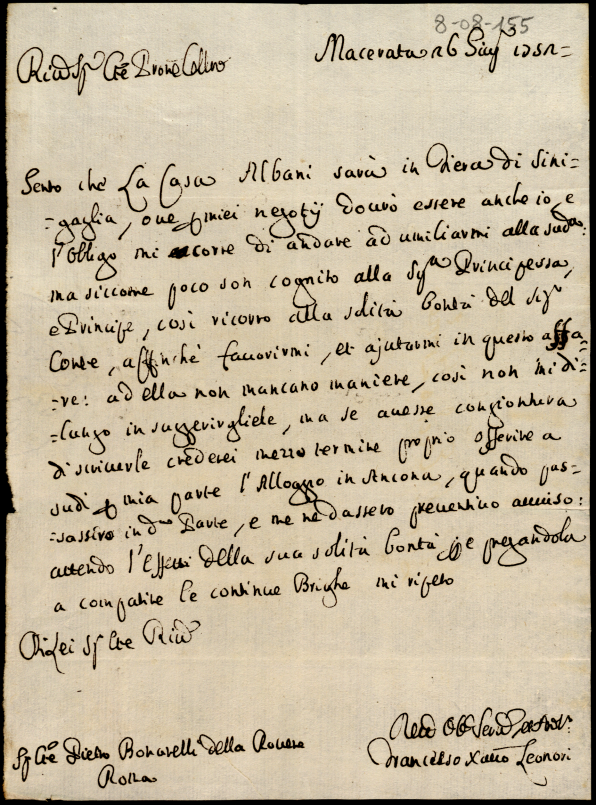 8-08-155
Macerata 26 Giug 1751=
Rived Sig Cte Prone Collmo
Sento che La Casa Albani sarà in Fiera di Sini=
=gaglia, ove p miei negotij dovrò essere anche io, e
l'obligo mi corre di andare ad umiliarmi alla sudа:
ma siccome poco son cognito alla Siga Principessa,
e Principe, così ricorro alla solita bontà del Sigr
Conte, affinché favorirmi, et ajutarmi in questo affa=
=re: ad ella non mancano maniere, così non mi di=
=lungo in suggerirgliele, ma se avesse congiontura
di scriverle crederei mezzo termine proprio offerire a
sudi p mia parte l'Alloggio in Ancona, quando pas=
=sassero in da Parte, e me ne dassero preventivo avviso:
attendo l'effetti della sua solita bontà, e pregandola
a compatire le continue Brighe mi ripeto
Di Lei Sig Cte Rived
Sig Cte Pietro Bonarelli della Rovere
Roma
Devo Obo Servo
Francesco Xaverio Leonori